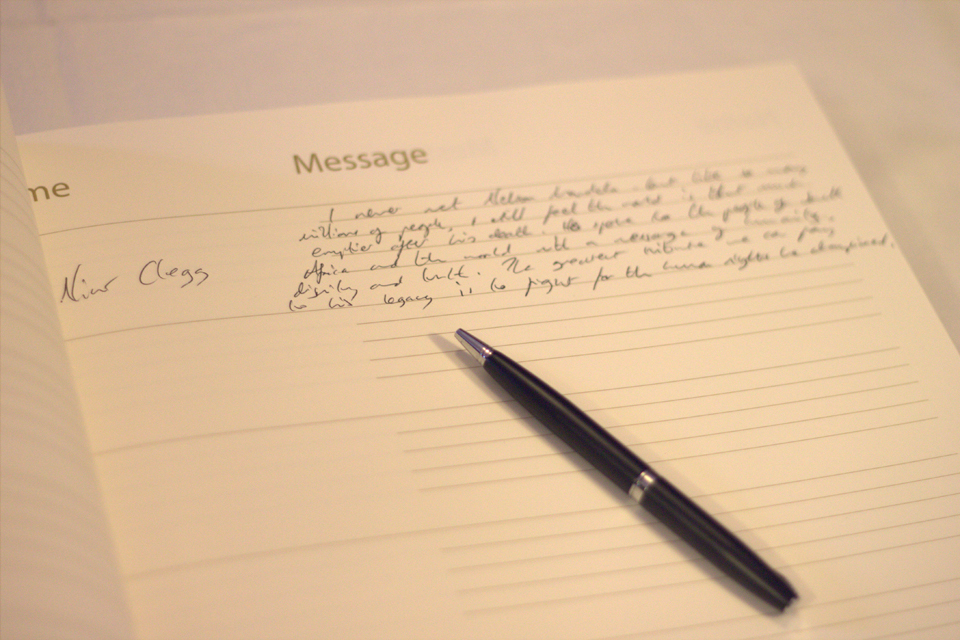 me
Message
Nick Clegg
I never met Nelson Mandela but, like so many
millions of people, I still feel the world is that much
emptier after his death. He spoke to the people of South
Africa and the world with a message of humanity,
dignity and truth. The greatest tribute we can pay
to his legacy is to fight for the human rights he championed.